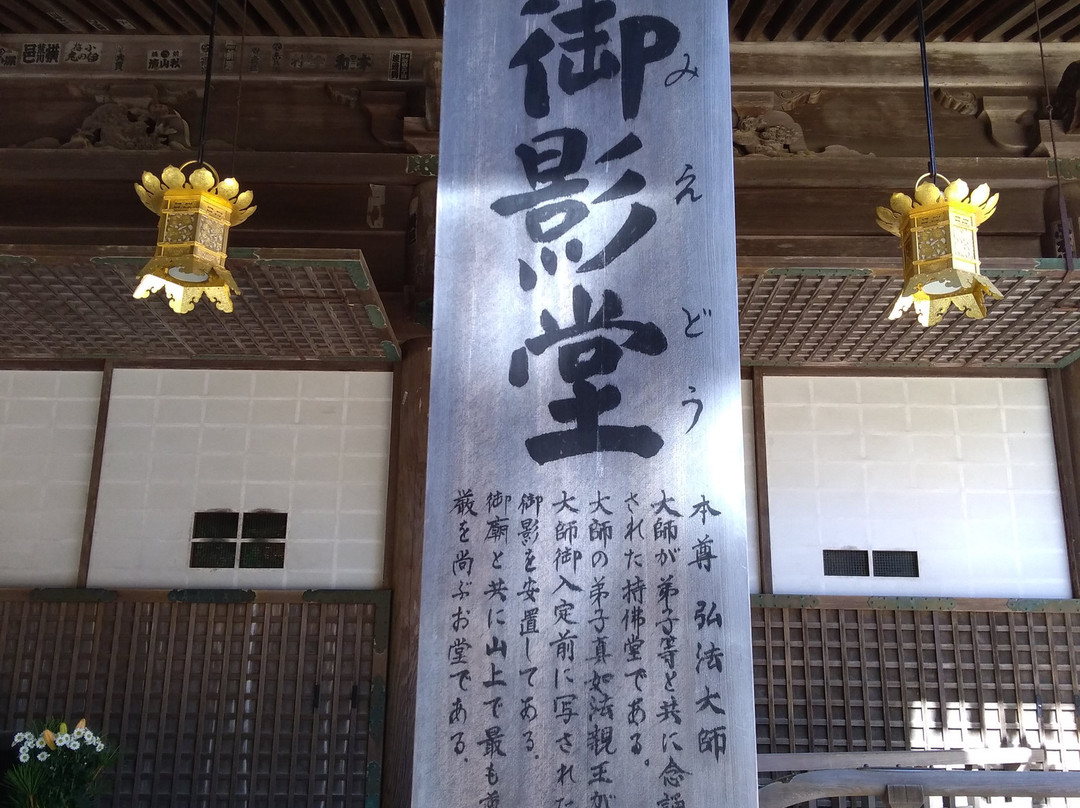 御影堂
みえどう
本尊 弘法大師
大師が弟子等と共に念誦
された持佛堂である。
大師の弟子真如法親王が
大師御入定前に写された
御影を安置してある。
御廟と共に山上で最も尊
厳を尚ぶお堂である。